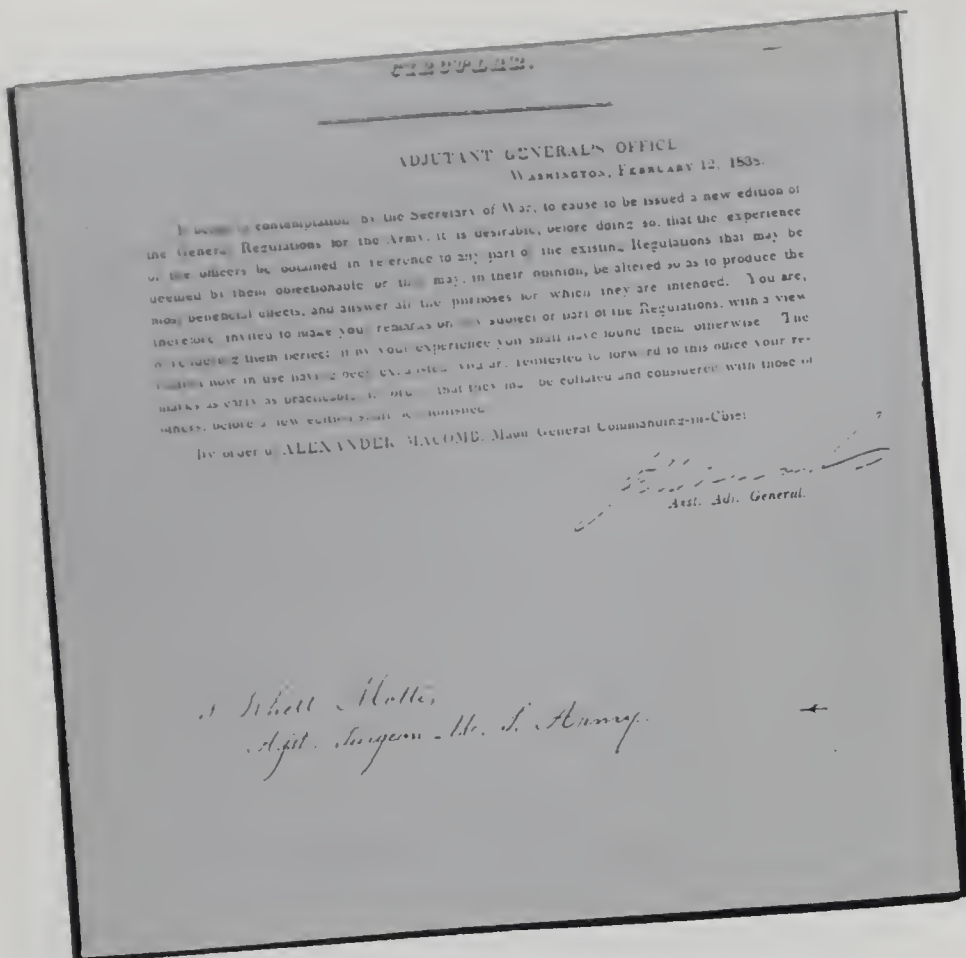 CIRCULAR.
ADJUTANT GENERAL'S OFFICE
WASHINGTON, FEBRUARY 12, 1838.
It being in contemplation by the Secretary of War, to cause to be issued a new edition of
the General Regulations for the Army, it is desirable, before doing so, that the experience
of the officers be obtained in reference to any part of the existing Regulations that may be
deemed by them objectionable or that may, in their opinion, be altered so as to produce the
most beneficial effects, and answer all the purposes for which they are intended. You are,
therefore, invited to make your remarks on any subject or part of the Regulations, with a view
of rendering them perfect if by your experience you shall have found them otherwise. The
edition now in use having been exhausted you are requested to forward to this office your re-
marks as early as practicable, in order that they may be collated and considered with those of
others, before a new edition shall be
By order of ALEXANDER MACOMB, Major General Commanding-in-Chief
Asst. Adj. General.
Rhett Motte,
Asst. Surgeon U. S. Army.